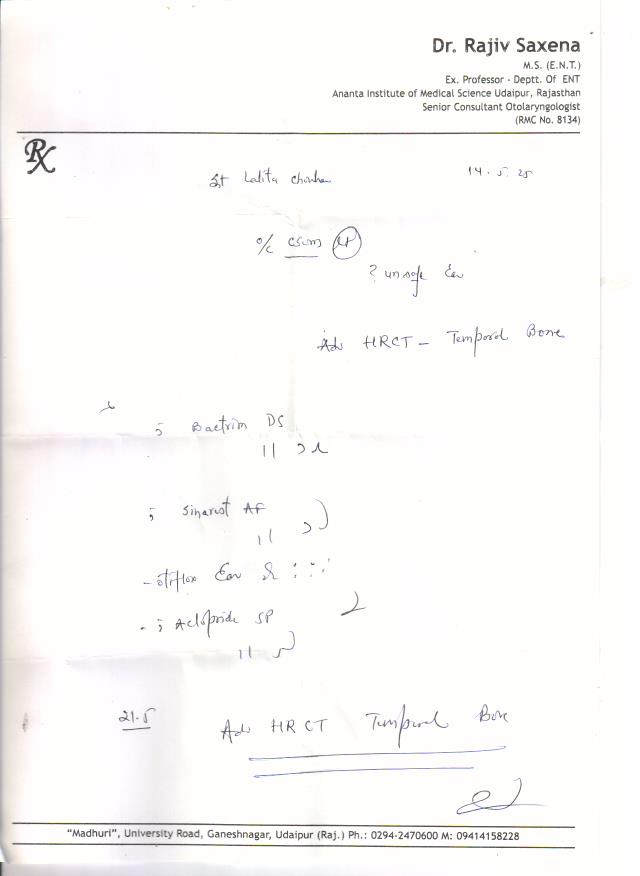 Dr. Rajiv Saxena
M.S. (E.N.T.)
Ex. Professor - Deptt. Of ENT
Ananta Institute of Medical Science Udaipur, Rajasthan
Senior Consultant Otolaryngologist
(RMC No. 8134)
Rx
Lalita 14.5.25
CSOM
? unsafe Ear
Adv HRCT - Temporal Bone
Bactrim DS
Sinarest AF
- otiflox Ear
SP
21.5 Adv HRCT Temporal Bone
"Madhuri", University Road, Ganeshnagar, Udaipur (Raj.) Ph.: 0294-2470600 M: 09414158228